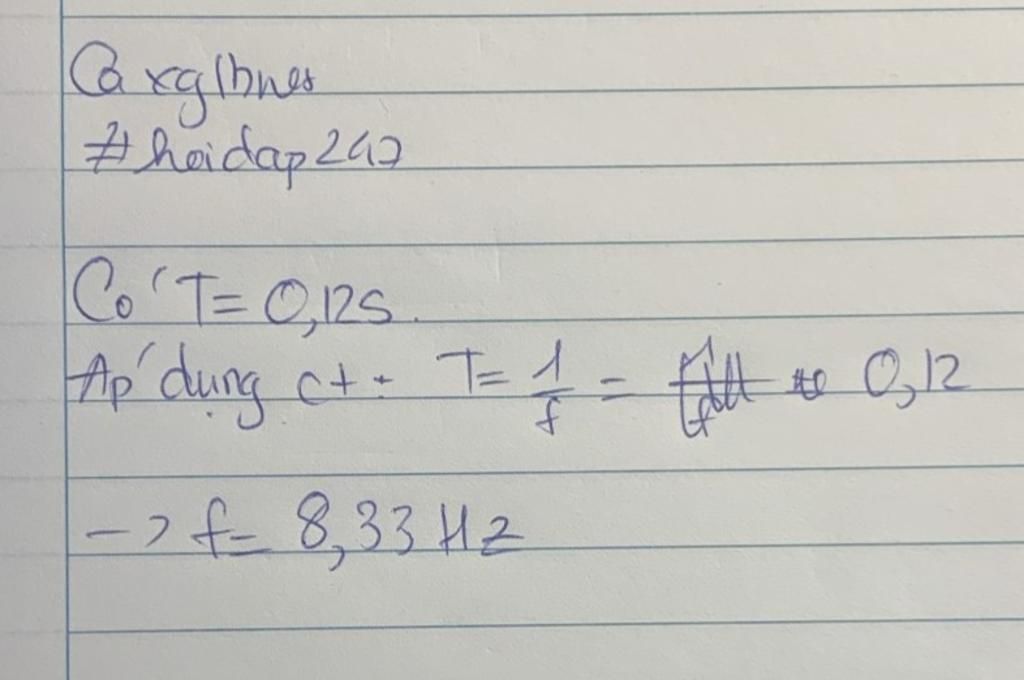 #hoidap247
Có T = 0,12s.
Áp dụng ct: T = 1/f = 0,12
-> f = 8,33 Hz